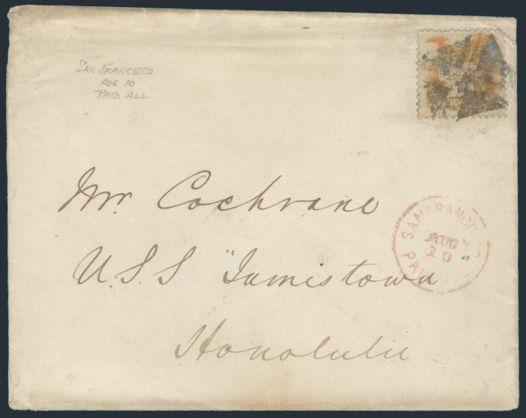 SAN FRANCISCO
AUG 10
PAID ALL
Mr. Cochrane
U.S.S "Jamestown"
Honolulu
SAN FRANCISCO
AUG
PAID